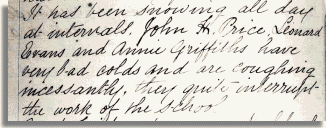 It has been snowing all day
at intervals. John H. Price, Leonard
Evans and Annie Griffiths have
very bad colds and are coughing
incessantly, they quite interrupt
the work of the school